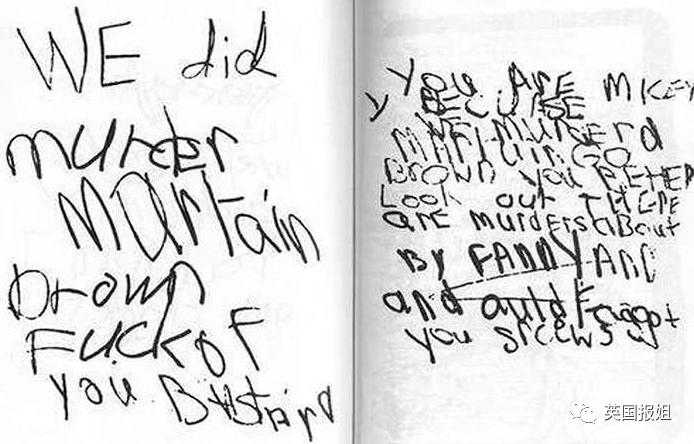 WE did
murder
martain
brown
Fuckof
you BAstArd
You ArE micEy
y BECuASE
WE murdErd
MArtAin GO
Brown you BEttER
Look out THErE
arE murdErs about
By FANNYAND
and auld Faggot
you srcews
英国报姐